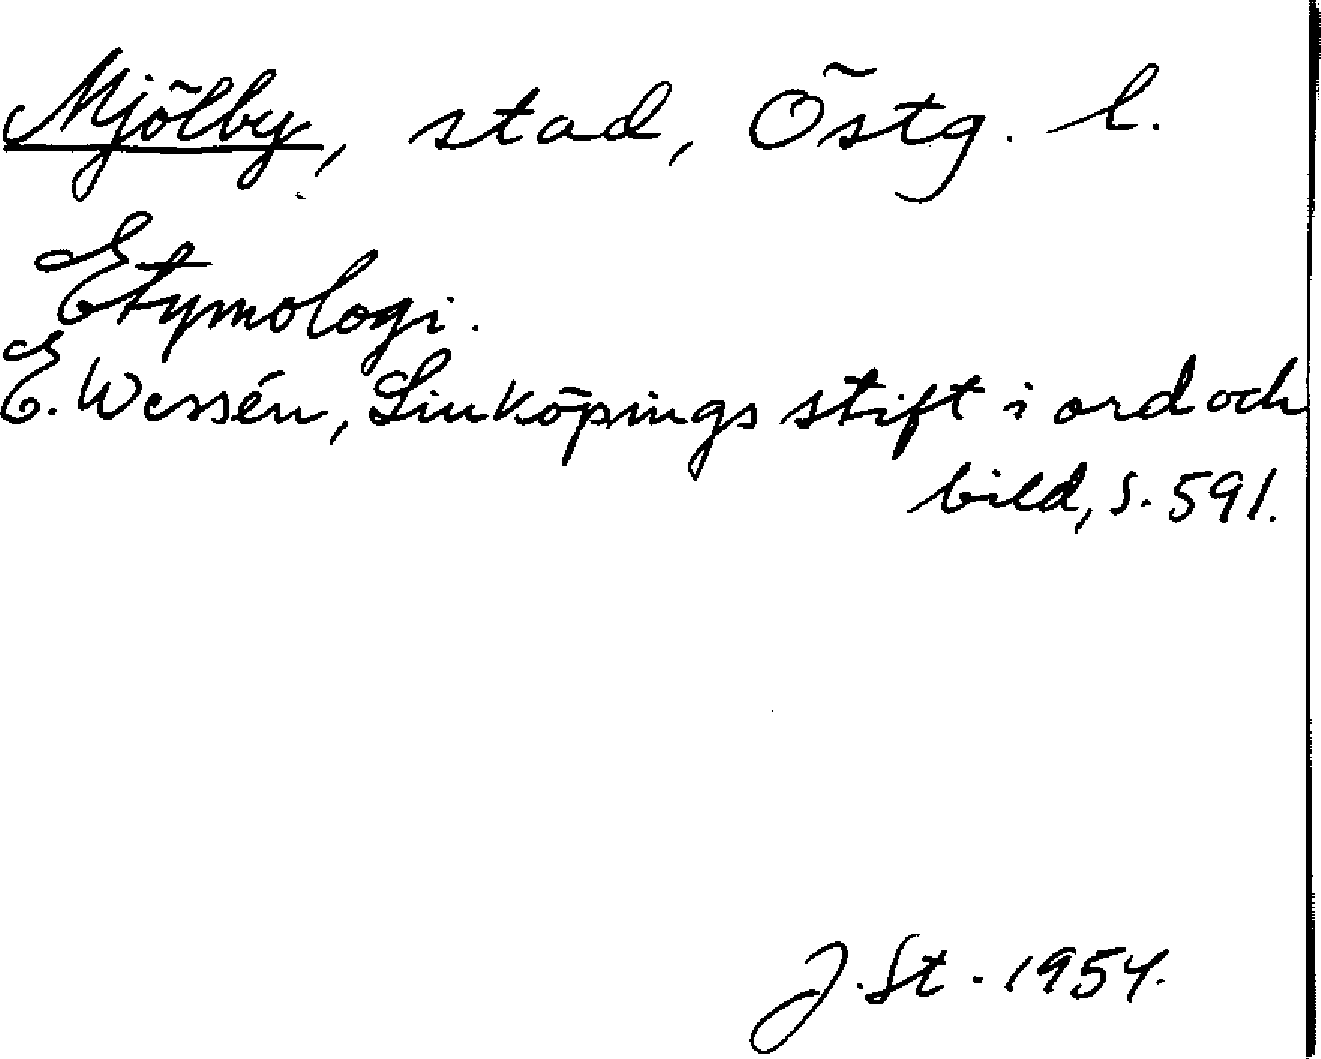 Mjölby, stad, Östg. l.
Etymologi.
E. Wessén, Linköpings stift i ord och
bild, s. 591.
J. St. 1954.